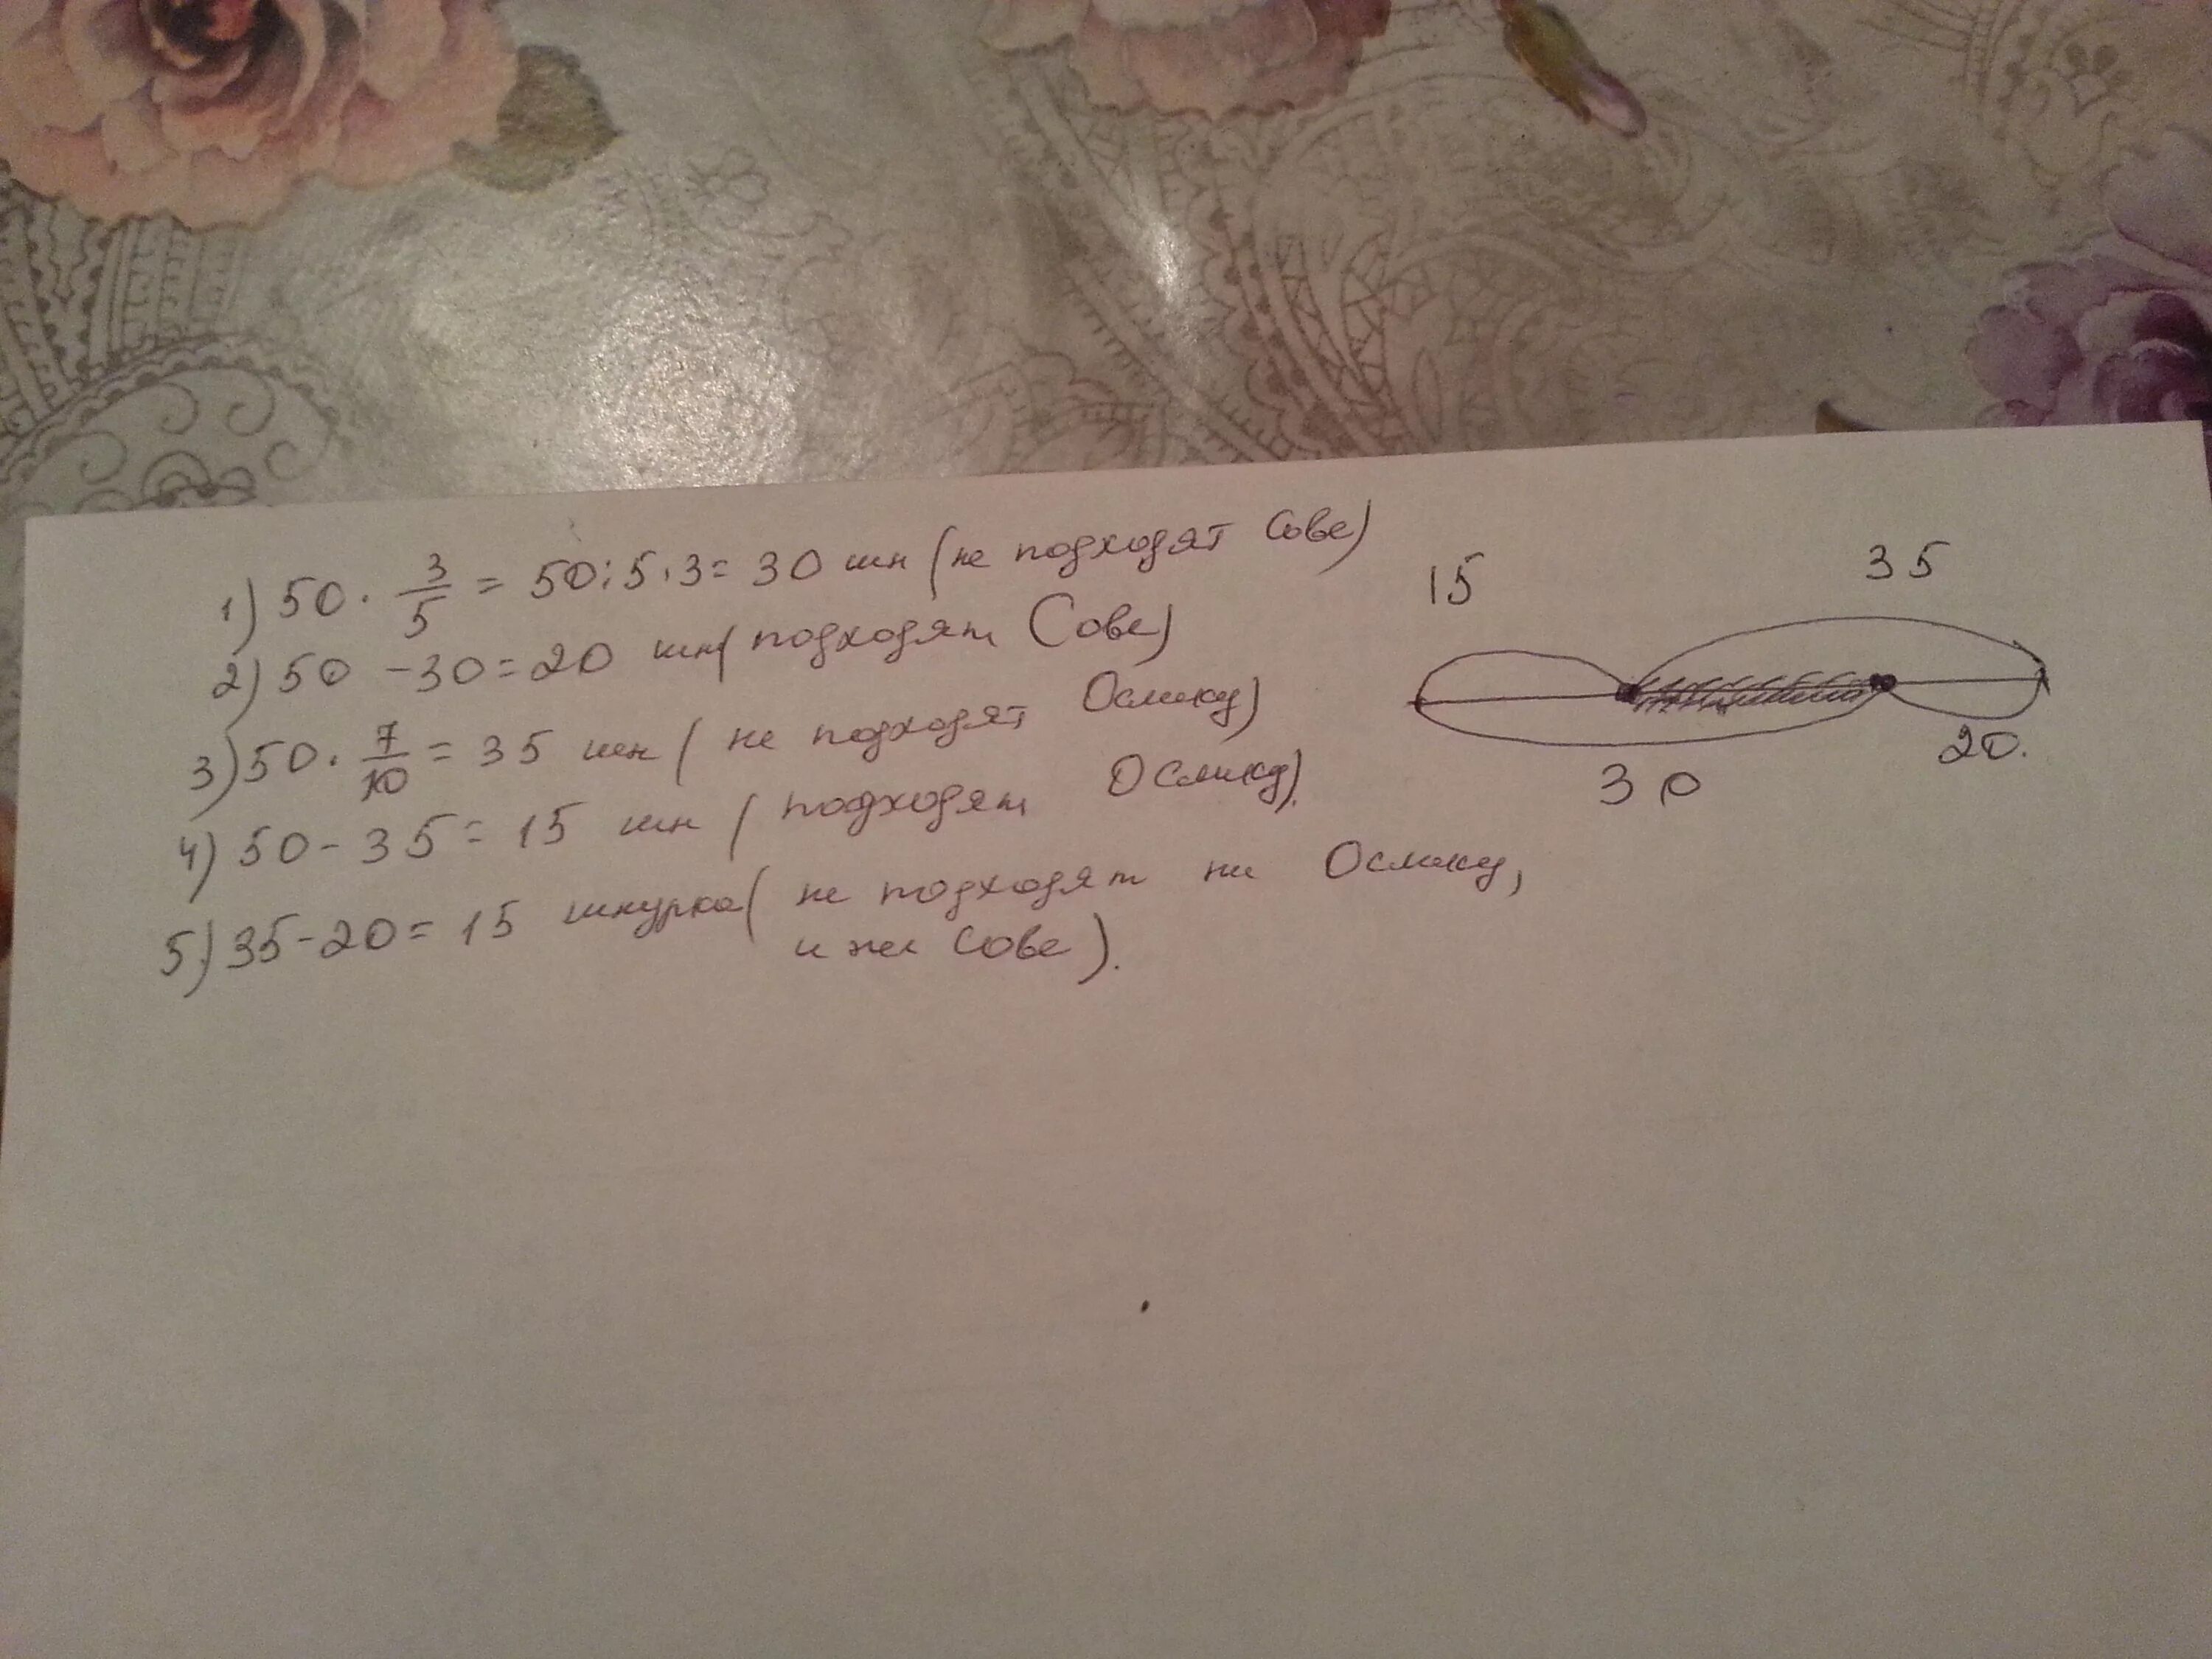 1) 50 · 3/5 = 50:5·3= 30 шн (не подходят Сове)
2) 50 - 30 = 20 шн (подходят Сове)
3) 50 · 7/10 = 35 шн (не подходят Ослику)
4) 50 - 35 = 15 шн (подходят Ослику).
5) 35 - 20 = 15 шнурка (не подходят ни Ослику,
и ни Сове).
15
35
30
20.